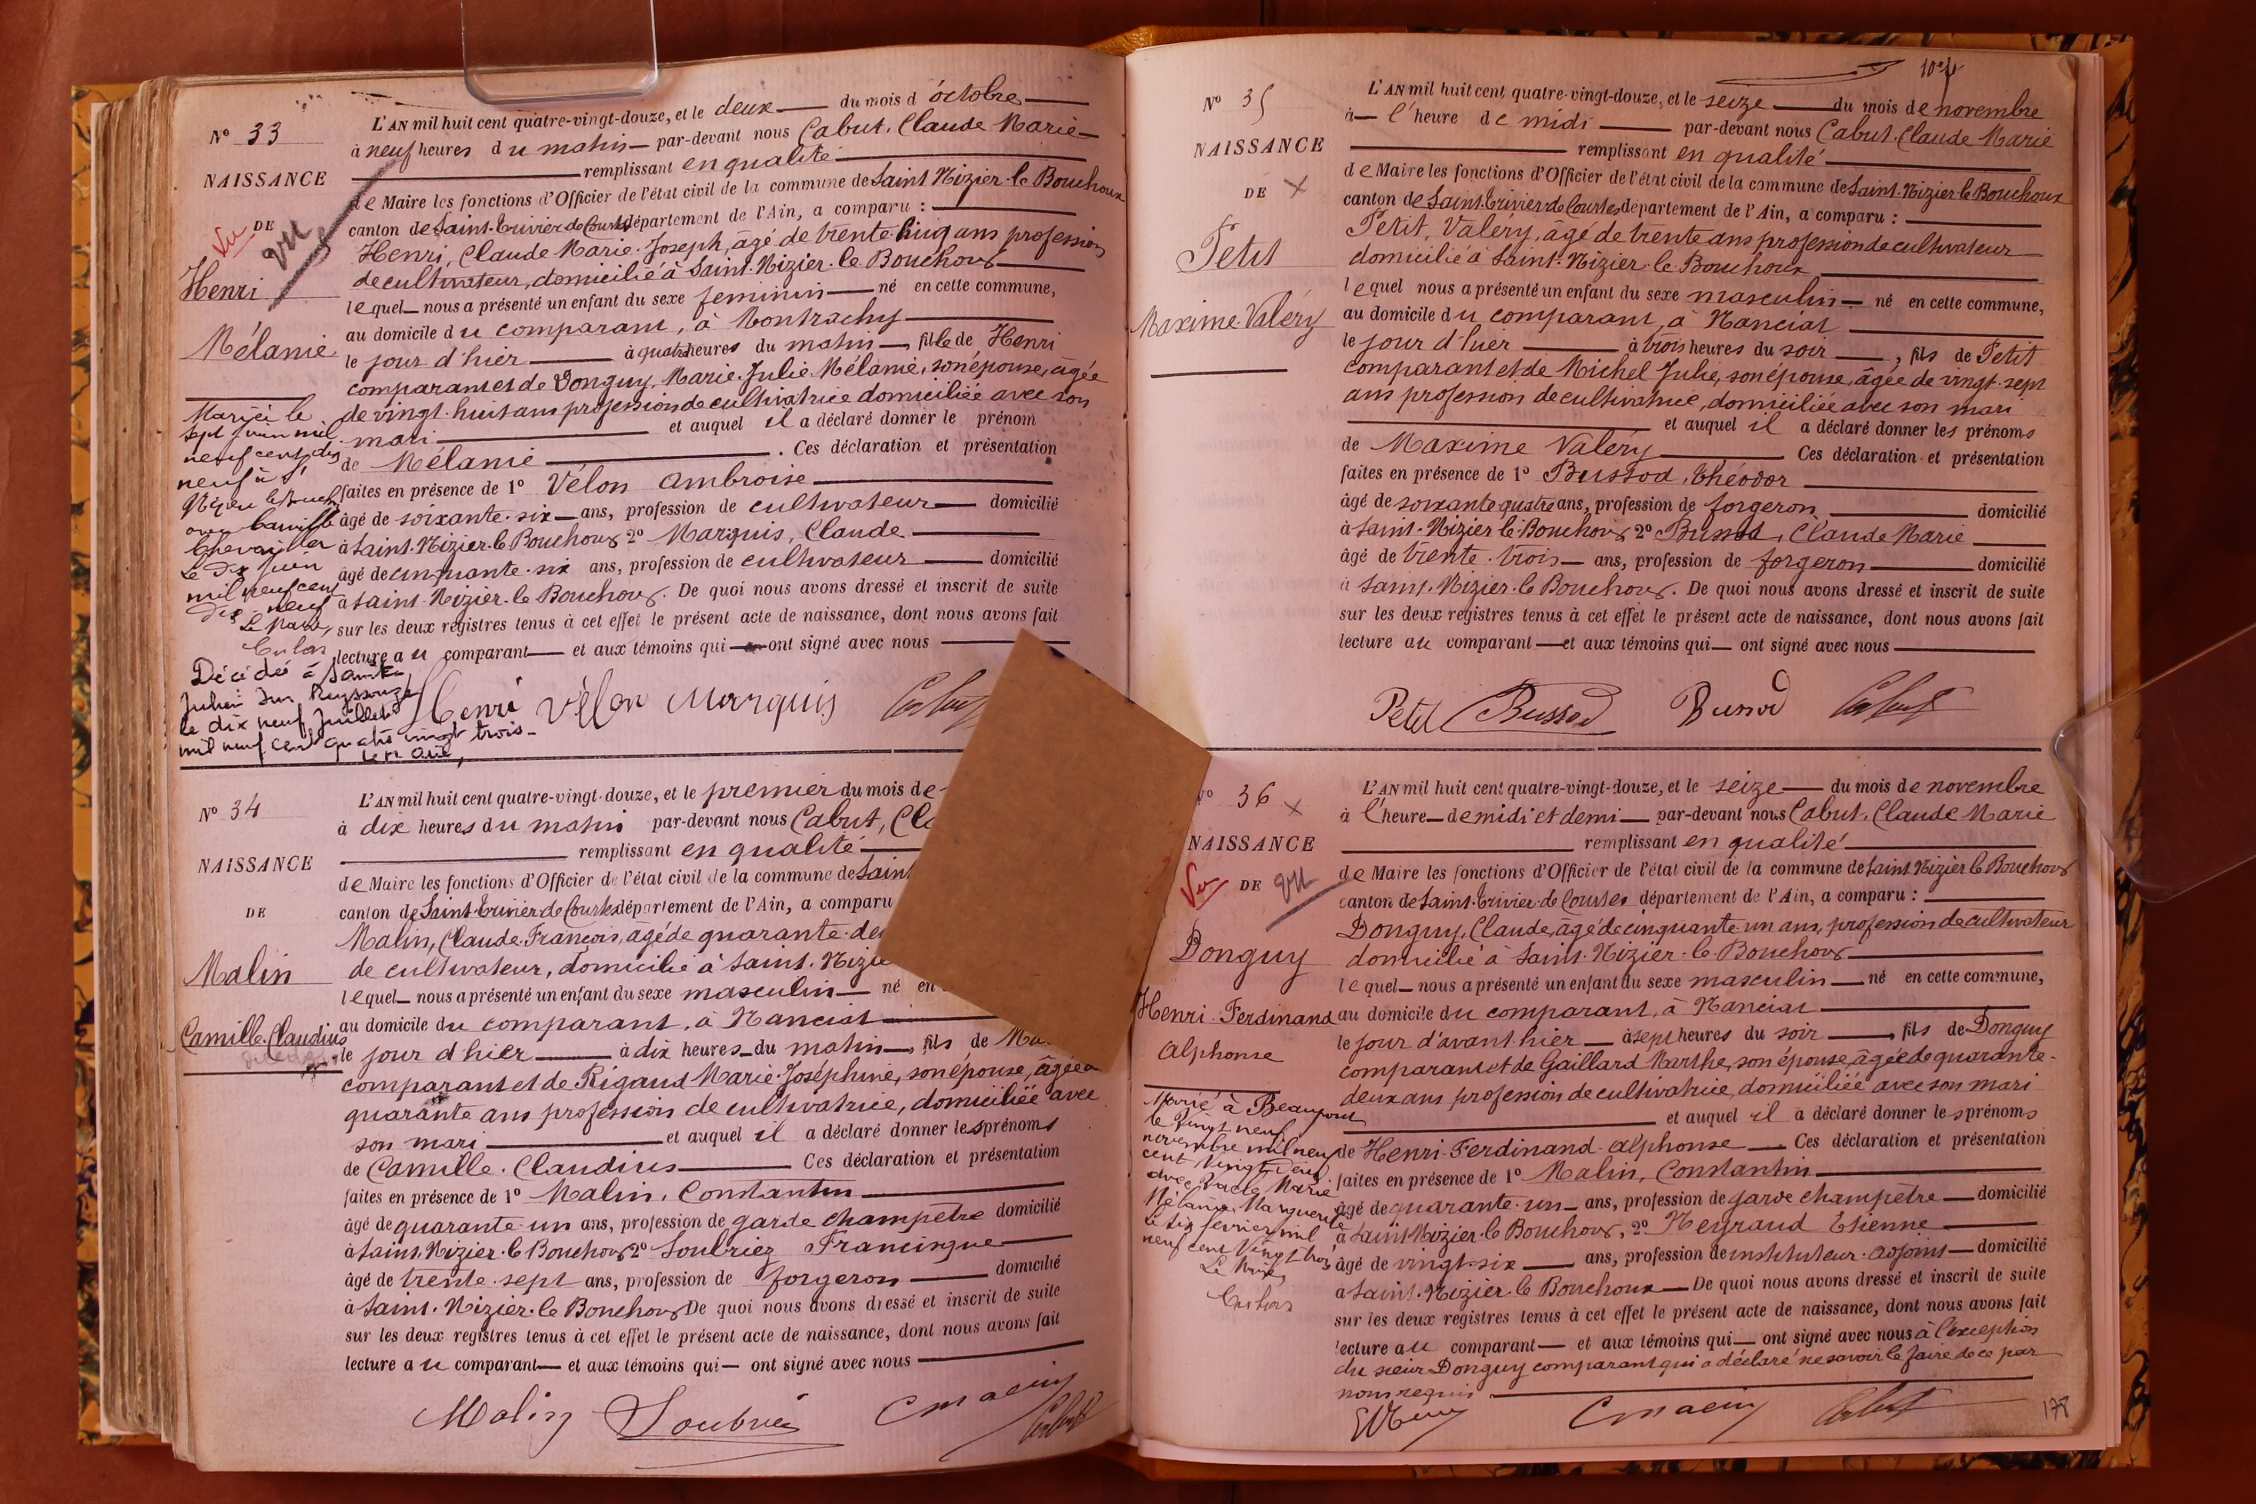 N° 33
NAISSANCE
DE
Vu
vu
Henri
Mélanie
L'AN mil huit cent quatre-vingt-douze, et le deux du mois d'octobre
à neuf heures du matin par-devant nous Cabut, Claude Marie
remplissant en qualité
de Maire les fonctions d'Officier de l'état civil de la commune de Saint Nizier-le Bouchoux
canton de Saint-Trivier de Courtes département de l'Ain, a comparu :
Henri, Claude Marie Joseph, âgé de trente cinq ans profession
de cultivateur, domicilié à Saint-Nizier-le Bouchoux
lequel nous a présenté un enfant du sexe feminin né en cette commune,
au domicile du comparant, à Montrachy
le jour d'hier à quatre heures du matin, fille de Henri
comparant et de Donguy, Marie Julie Mélanie, son épouse, âgée
de vingt-huit ans profession de cultivatrice domiciliée avec son
mari et auquel il a déclaré donner le prénom
de Mélanie. Ces déclaration et présentation
faites en présence de 1° Vélon Ambroise
âgé de soixante-six ans, profession de cultivateur domicilié
à Saint-Nizier-le Bouchoux 2° Marquis, Claude
âgé de cinquante-six ans, profession de cultivateur domicilié
à Saint-Nizier-le Bouchoux. De quoi nous avons dressé et inscrit de suite
sur les deux registres tenus à cet effet le présent acte de naissance, dont nous avons fait
lecture au comparant et aux témoins qui ont signé avec nous
Mariée le
sept juin mil
neuf cent dix
neuf à St
Nizier le Bouch
avec Camille
Chevalier
Le dix juin
mil neuf cent
dix neuf
Le Maire,
Décédée à Saint
Julien sur Reyssouze
le dix neuf juillet
mil neuf cent quatre vingt trois
Henri Vélon Marquis Cabut
N° 34
NAISSANCE
DE
Malin
Camille-Claudius
L'AN mil huit cent quatre-vingt-douze, et le premier du mois de
à dix heures du matin par-devant nous Cabut, Cl
remplissant en qualité
de Maire les fonctions d'Officier de l'état civil de la commune de Saint
canton de Saint-Trivier de Courtes département de l'Ain, a comparu
Malin, Claude-François, âgé de quarante-de
de cultivateur, domicilié à Saint-Nizie
lequel nous a présenté un enfant du sexe masculin né en
au domicile du comparant, à Nanciat
le jour d'hier à dix heures du matin, fils de Ma
comparant et de Rigaud Marie-Joséphine, son épouse, âgée
quarante ans profession de cultivatrice, domiciliée avec
son mari et auquel il a déclaré donner les prénoms
de Camille-Claudius Ces déclaration et présentation
faites en présence de 1° Malin, Constantin
âgé de quarante-un ans, profession de garde champêtre domicilié
à Saint-Nizier-le Bouchoux 2° Soubriez Francisque
âgé de trente-sept ans, profession de forgeron domicilié
à Saint-Nizier-le Bouchoux De quoi nous avons dressé et inscrit de suite
sur les deux registres tenus à cet effet le présent acte de naissance, dont nous avons fait
lecture au comparant et aux témoins qui ont signé avec nous
Malin Soubriez Cabut
N° 35
NAISSANCE
DE
Petit
Maxime-Valéry
L'AN mil huit cent quatre-vingt-douze, et le seize du mois de novembre
à l'heure de midi par-devant nous Cabut, Claude Marie
remplissant en qualité
de Maire les fonctions d'Officier de l'état civil de la commune de Saint-Nizier le Bouchoux
canton de Saint-Trivier-de Courtes département de l'Ain, a comparu :
Petit, Valéry, âgé de trente ans profession de cultivateur
domicilié à Saint-Nizier-le Bouchoux
lequel nous a présenté un enfant du sexe masculin né en cette commune,
au domicile du comparant, à Nanciat
le jour d'hier à trois heures du soir, fils de Petit
comparant et de Michel Julie, son épouse, âgée de vingt-sept
ans profession de cultivatrice, domiciliée avec son mari
et auquel il a déclaré donner les prénoms
de Maxime Valéry Ces déclaration et présentation
faites en présence de 1° Bussod, Théodor
âgé de soixante quatre ans, profession de forgeron domicilié
à Saint-Nizier le Bouchoux 2° Bussod, Claude Marie
âgé de trente-trois ans, profession de forgeron domicilié
à Saint-Nizier-le Bouchoux. De quoi nous avons dressé et inscrit de suite
sur les deux registres tenus à cet effet le présent acte de naissance, dont nous avons fait
lecture au comparant et aux témoins qui ont signé avec nous
Petit Bussod Bussod Cabut
N° 36
NAISSANCE
Vu DE vu
Donguy
Henri-Ferdinand
Alphonse
L'AN mil huit cent quatre-vingt-douze, et le seize du mois de novembre
à l'heure de midi et demi par-devant nous Cabut, Claude Marie
remplissant en qualité
de Maire les fonctions d'Officier de l'état civil de la commune de Saint Nizier le Bouchoux
canton de Saint-Trivier-de Courtes département de l'Ain, a comparu :
Donguy, Claude, âgé de cinquante-un ans, profession de cultivateur
domicilié à Saint-Nizier-le Bouchoux
lequel nous a présenté un enfant du sexe masculin né en cette commune,
au domicile du comparant, à Nanciat
le jour d'avant hier à sept heures du soir, fils de Donguy
comparant et de Gaillard Marthe, son épouse, âgée de quarante-
deux ans profession de cultivatrice, domiciliée avec son mari
et auquel il a déclaré donner les prénoms
de Henri-Ferdinand-Alphonse. Ces déclaration et présentation
faites en présence de 1° Malin, Constantin
âgé de quarante-un ans, profession de garde champêtre domicilié
à Saint-Nizier-le Bouchoux, 2° Neyraud Etienne
âgé de vingt-six ans, profession de instituteur-adjoint domicilié
à Saint-Nizier-le Bouchoux De quoi nous avons dressé et inscrit de suite
sur les deux registres tenus à cet effet le présent acte de naissance, dont nous avons fait
lecture au comparant et aux témoins qui ont signé avec nous à l'exception
du sieur Donguy comparant qui a déclaré ne savoir le faire de ce par
nous requis
Marié à Beaupont
le vingt neuf
novembre mil neuf
cent vingt deux
avec Marie
Mélanie Marguerite
Le six février mil
neuf cent vingt trois
Le Maire
Cabut
178